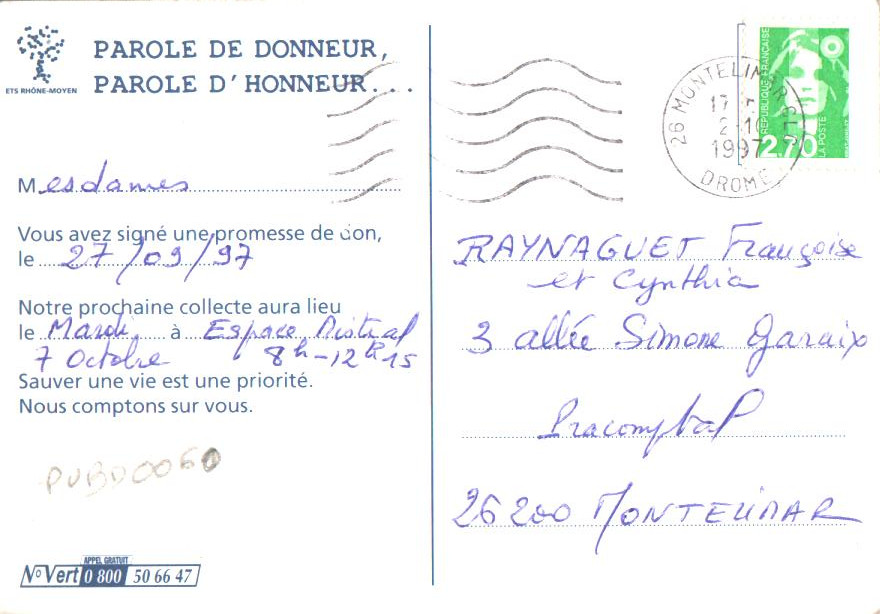 PAROLE DE DONNEUR,
PAROLE D'HONNEUR...
ETS RHÔNE-MOYEN
Mesdames
Vous avez signé une promesse de don,
le 27/09/97
Notre prochaine collecte aura lieu
le Mardi à Espace Mistral
7 Octobre 8h-12h15
Sauver une vie est une priorité.
Nous comptons sur vous.
PUBD0060
APPEL GRATUIT
N°Vert 0 800 50 66 47
26 MONTELIMAR
17
2-10
1997
DROME
REPUBLIQUE FRANÇAISE
2,70
LA POSTE
RAYNAGUET Françoise
et Cynthia
3 allée Simone Garaix
Pracomptal
26200 MONTELIMAR